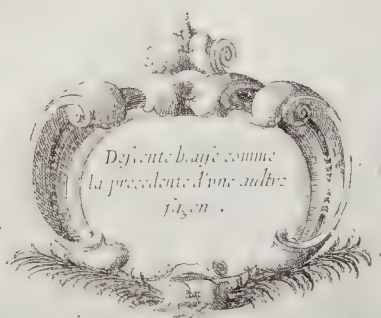 Descente biayse comme
la precedente d'une aultre
façon .